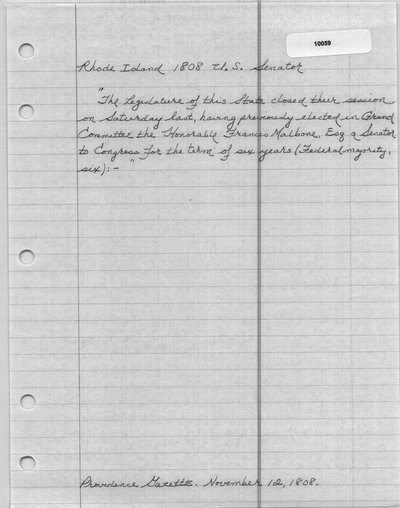 10059
Rhode Island 1808 U.S. Senator
"The Legislature of this State closed their session
on Saturday last, having previously elected in Grand
Committee the Honorable Francis Malbone, Esq a Senator
to Congress for the term of six years (Federal majority,
six):-"
Providence Gazette. November 12, 1808.